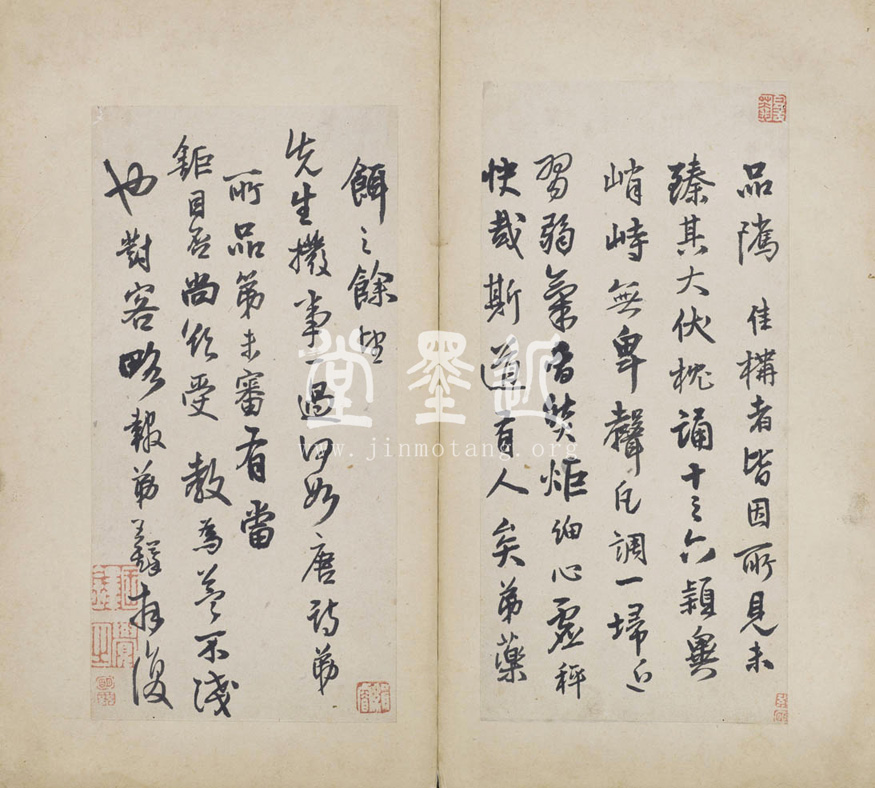 品隲 佳構者皆因所見未
臻其大伏枕誦十之六穎異
峭峙無卑聲凡調一埽近
習弱氣眉炎炬細心虛秤
快哉斯道百人矣弟藥
餌之餘
先生撥事一過何如唐詩弟
所品第未審有當
鉅目否尚祈受教為益不淺
也對客略報弟
復
近墨堂
www.jinmotang.org